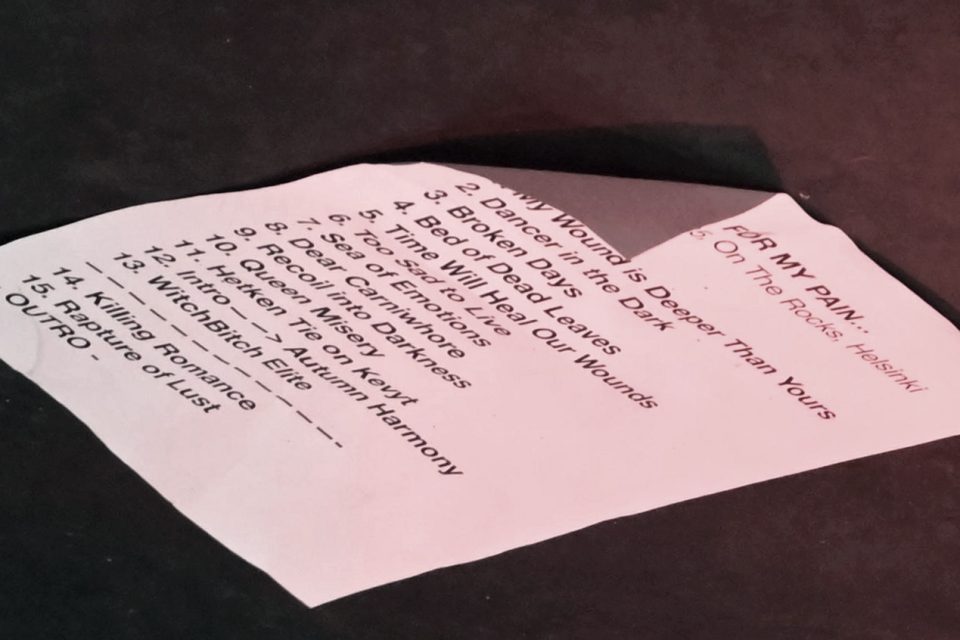 FØR MY PAIN..
On The Rocks, Helsinki
My Wound is Deeper Than Yours
2. Dancer in the Dark
3. Broken Days
4. Bed of Dead Leaves
5. Time Will Heal Our Wounds
6. Too Sad to Live
7. Sea of Emotions
8. Dear Carniwhore
9. Recoil into Darkness
10. Queen Misery
11. Hetken Tie on Kevyt
12. Intro ---> Autumn Harmony
13. WitchBitch Elite
14. Killing Romance
15. Rapture of Lust
OUTRO -